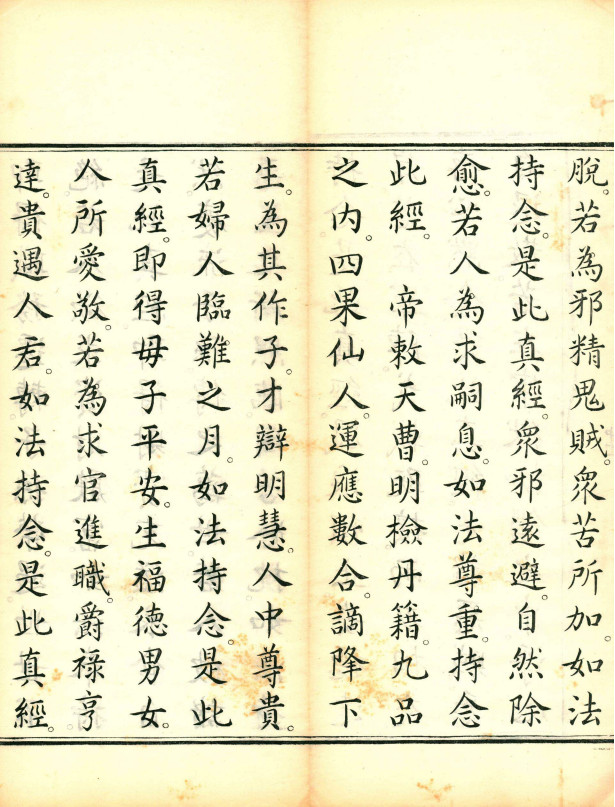 脫。若為邪精鬼賊。衆苦所加。如法
持念。是此真經。衆邪遠避。自然除
愈。若人為求嗣息。如法尊重。持念
此經。　帝敕天曹。明檢丹籍。九品
之内。四果仙人。運應數合。謫降下
生。為其作子。才辯明慧。人中尊貴。
若婦人臨難之月。如法持念。是此
真經。即得母子平安。生福德男女。
人所愛敬。若為求官進職。爵祿亨
達。貴遇人君。如法持念。是此真經。